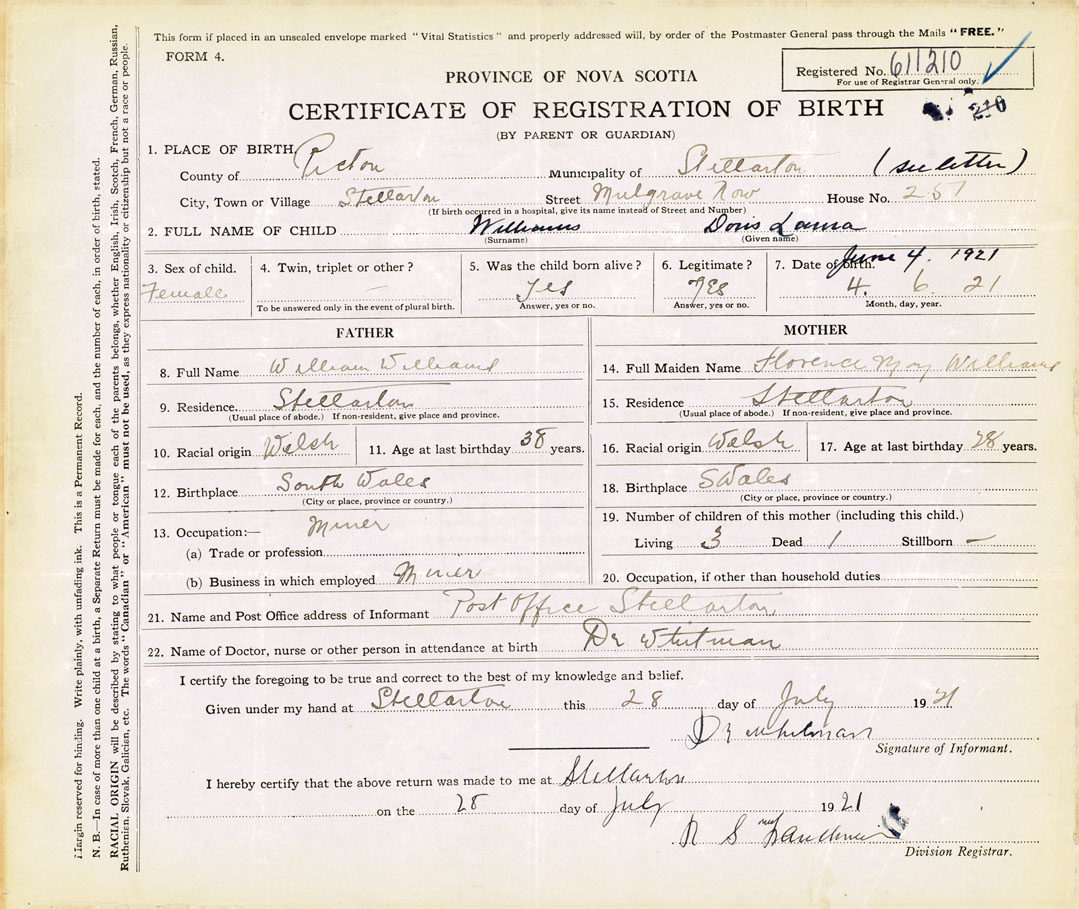 This form if placed in an unsealed envelope marked "Vital Statistics" and properly addressed will, by order of the Postmaster General pass through the Mails "FREE."
FORM 4.
Registered No. 611210
For use of Registrar General only.
210
PROVINCE OF NOVA SCOTIA
CERTIFICATE OF REGISTRATION OF BIRTH
(BY PARENT OR GUARDIAN)
1. PLACE OF BIRTH
County of Pictou Municipality of Stellarton (see letter)
City, Town or Village Stellarton Street Mulgrave Row House No.
(If birth occurred in a hospital, give its name instead of Street and Number)
2. FULL NAME OF CHILD Williams Doris Laura
(Surname) (Given name)
3. Sex of child. 4. Twin, triplet or other? 5. Was the child born alive? 6. Legitimate? 7. Date of birth. June 4. 1921
Female — Yes Yes 4. 6. 21
To be answered only in the event of plural birth. Answer, yes or no. Answer, yes or no. Month, day, year.
FATHER
8. Full Name William Williams
9. Residence. Stellarton
(Usual place of abode.) If non-resident, give place and province.
10. Racial origin Welsh 11. Age at last birthday 38 years.
12. Birthplace South Wales
(City or place, province or country.)
13. Occupation:— Miner
(a) Trade or profession
(b) Business in which employed Miner
MOTHER
14. Full Maiden Name Florence May Williams
15. Residence Stellarton
(Usual place of abode.) If non-resident, give place and province.
16. Racial origin Welsh 17. Age at last birthday 28 years.
18. Birthplace S Wales
(City or place, province or country.)
19. Number of children of this mother (including this child.)
Living 3 Dead 1 Stillborn —
20. Occupation, if other than household duties
21. Name and Post Office address of Informant Post Office Stellarton
22. Name of Doctor, nurse or other person in attendance at birth Dr Whitman
I certify the foregoing to be true and correct to the best of my knowledge and belief.
Given under my hand at Stellarton this 28 day of July 1921
Dr Whitman
Signature of Informant.
I hereby certify that the above return was made to me at Stellarton
on the 28 day of July 1921
R S
Division Registrar.
Margin reserved for binding. Write plainly, with unfading ink. This is a Permanent Record.
N. B.—In case of more than one child at a birth, a Separate Return must be made for each, and the number of each, in order of birth, stated.
RACIAL ORIGIN will be described by stating to what people or tongue each of the parents belongs, whether English, Irish, Scotch, French, German, Russian,
Ruthenian, Slovak, Galician, etc. The words "Canadian" or "American" must not be used, as they express nationality or citizenship but not a race or people.